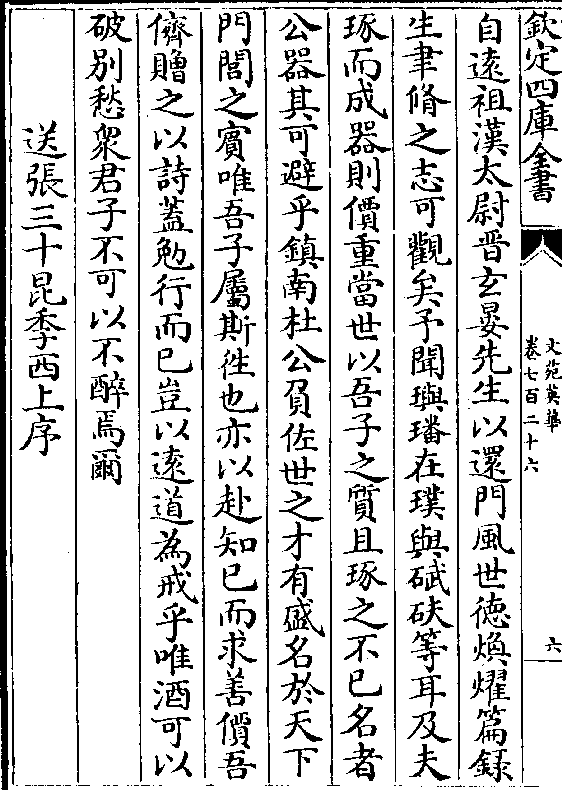 欽定四庫全書
文苑英華
卷七百二十六
六
自遠祖漢太尉晋玄晏先生以還門風世徳煥燿篇録
生聿脩之志可觀矣予聞璵璠在璞與碔砆等耳及夫
琢而成器則價重當世以吾子之質且琢之不已名者
公器其可避乎鎮南杜公負佐世之才有盛名於天下
門閭之賓唯吾子屬斯徃也亦以赴知已而求善價吾
儕贈之以詩蓋勉行而已豈以逺道為戒乎唯酒可以
破别愁衆君子不可以不醉焉爾
送張三十昆季西上序